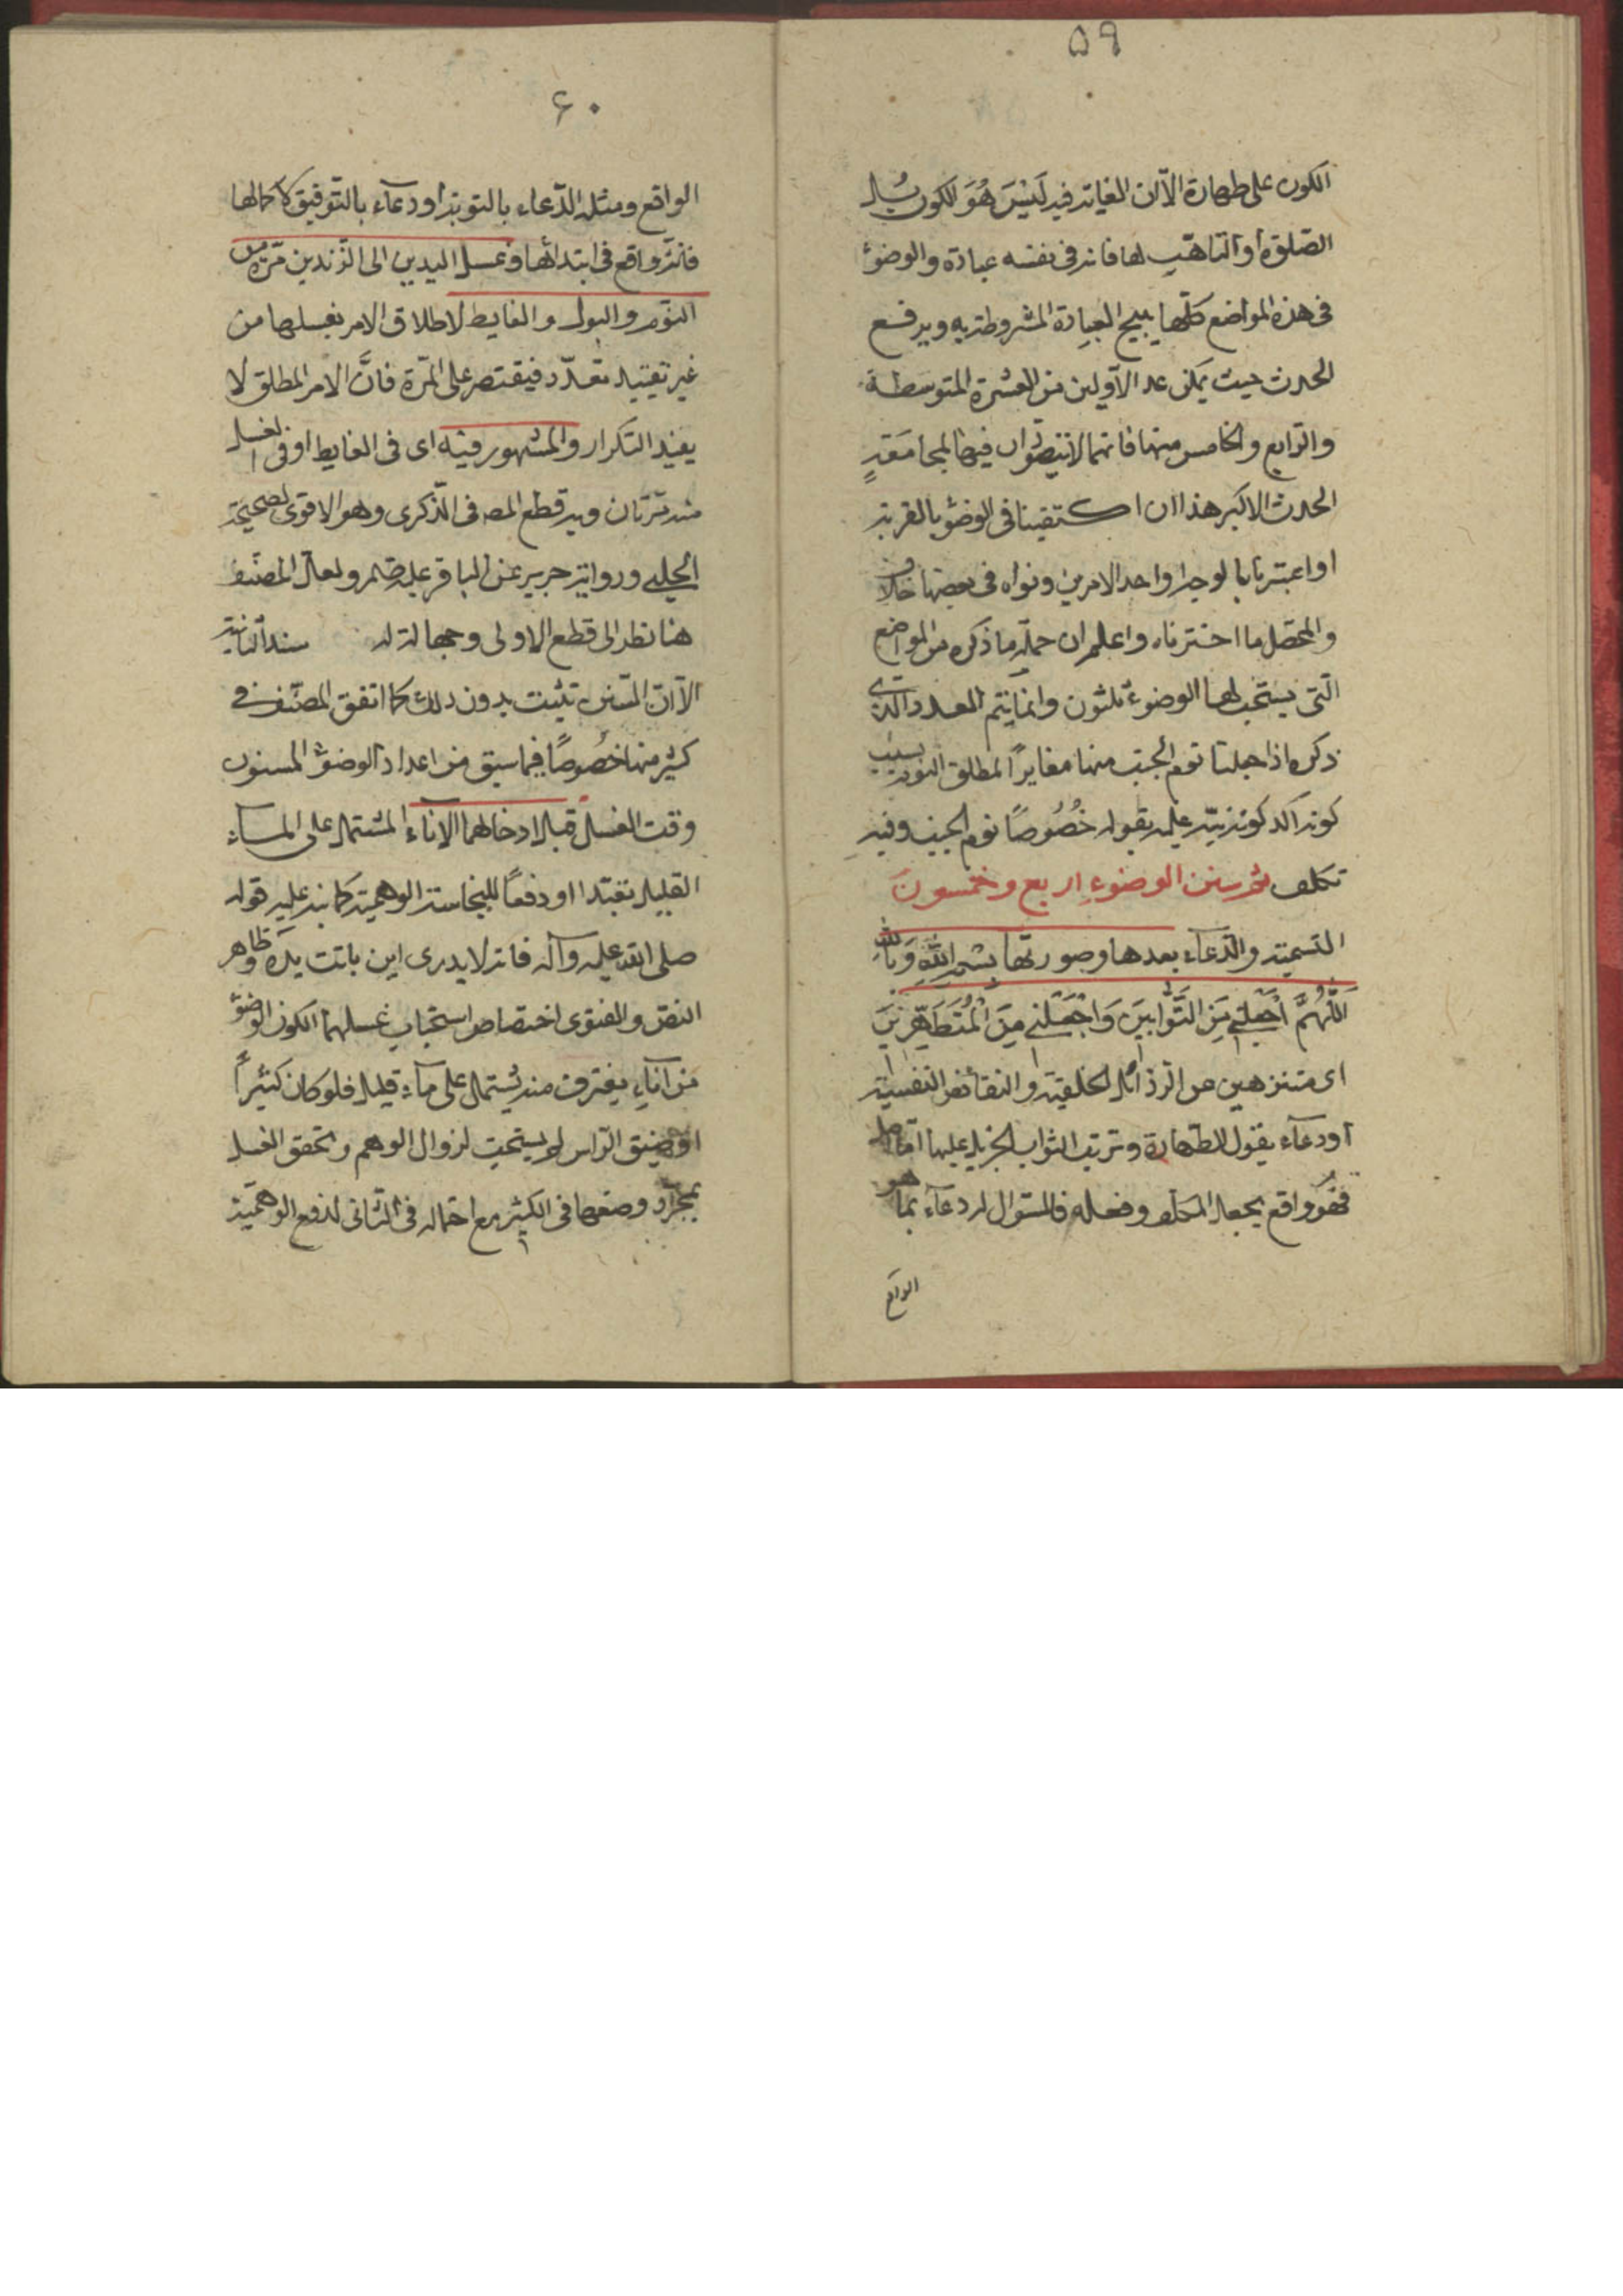 ٥٩
الكون على طهارة الا ان الغاية فيه ليس هو الكون بل
الصلوة او التاهب لها فانه في نفسه عبادة والوضوء
في هذه المواضع كلها يبيح العبادة المشروطة به ويرفع
الحدث حيث يمكن عدا الاولين من العشرة المتوسطة
والرابع والخامس منها فانهما لا يتصوران فيها لمجامعة
الحدث الاكبر هذا ان اكتفينا في الوضوء بالقربة
او اعتبرنا بالوجه او احد الامرين ونواه في بعضها خلاف
والمحصل ما اخترناه واعلم ان جملة ما ذكره من المواضع
التي يستحب لها الوضوء ثلثون وانما يتم العدد الذي
ذكره اذا جعلنا نوم الجنب منها مغايرا لمطلق النوم بسبب
كونه اكد كونه نبه عليه بقوله خصوصا نوم الجنب وفيه
تكلف ثم سنن الوضوء اربع وخمسون
التسمية والدعاء بعدها وصورتها بسم الله وبالله
اَللّٰهُمَّ اجْعَلْنِي مِنَ التَّوَّابِينَ وَاجْعَلْنِي مِنَ الْمُتَطَهِّرِينَ
اى متنزهين عن الرذائل الخلقية والنقائص النفسية
او دعاء بقبول الطهارة وترتب الثواب الجزيل عليها اما اصله
فهو واقع بجعل المكلف وفعله فالسؤال له دعاء بما هو
الواقع
٦٠
الواقع ومثله الدعاء بالتوبة او دعاء بالتوفيق لاكمالها
فانه واقع في ابتدائها وغسل اليدين الى الزندين مرة من
النوم والبول والغايط لاطلاق الامر بغسلها من
غير تقييد بتعدد فيقتصر على المرة فانَّ الامر المطلق لا
يفيد التكرار والمشهور فيه اى في الغايط او في الغسل
منه مرتان وبه قطع المصـ في الذكرى وهو الاقوى لصحيحة
الحلبي ورواية حريز عن الباقر عليه السلام ولعل المصنف
هنا نظر الى قطع الاولى وجهالة سند الثانية
الا ان السنن تثبت بدون ذلك كما اتفق المصنف في
كثير منها خصوصا فيما سبق من اعداد الوضوء المسنون
وقت الغسل قبل ادخالهما الاناء المشتمل على الماء
القليل تعبدا او دفعا للنجاسة الوهمية كما نبه عليه قوله
صلى الله عليه وآله فانه لا يدرى اين باتت يده وظاهر
النص والفتوى اختصاص استحباب غسلهما لكون الوضوء
من اناء يغترف منه يشتمل على ماء قليل فلو كان كثيرا
او ضيق الراس لم يستحب لزوال الوهم وتحقق الغسل
بمجرد وضعها في الكثير مع احتماله في الثاني لدفع الوهمية